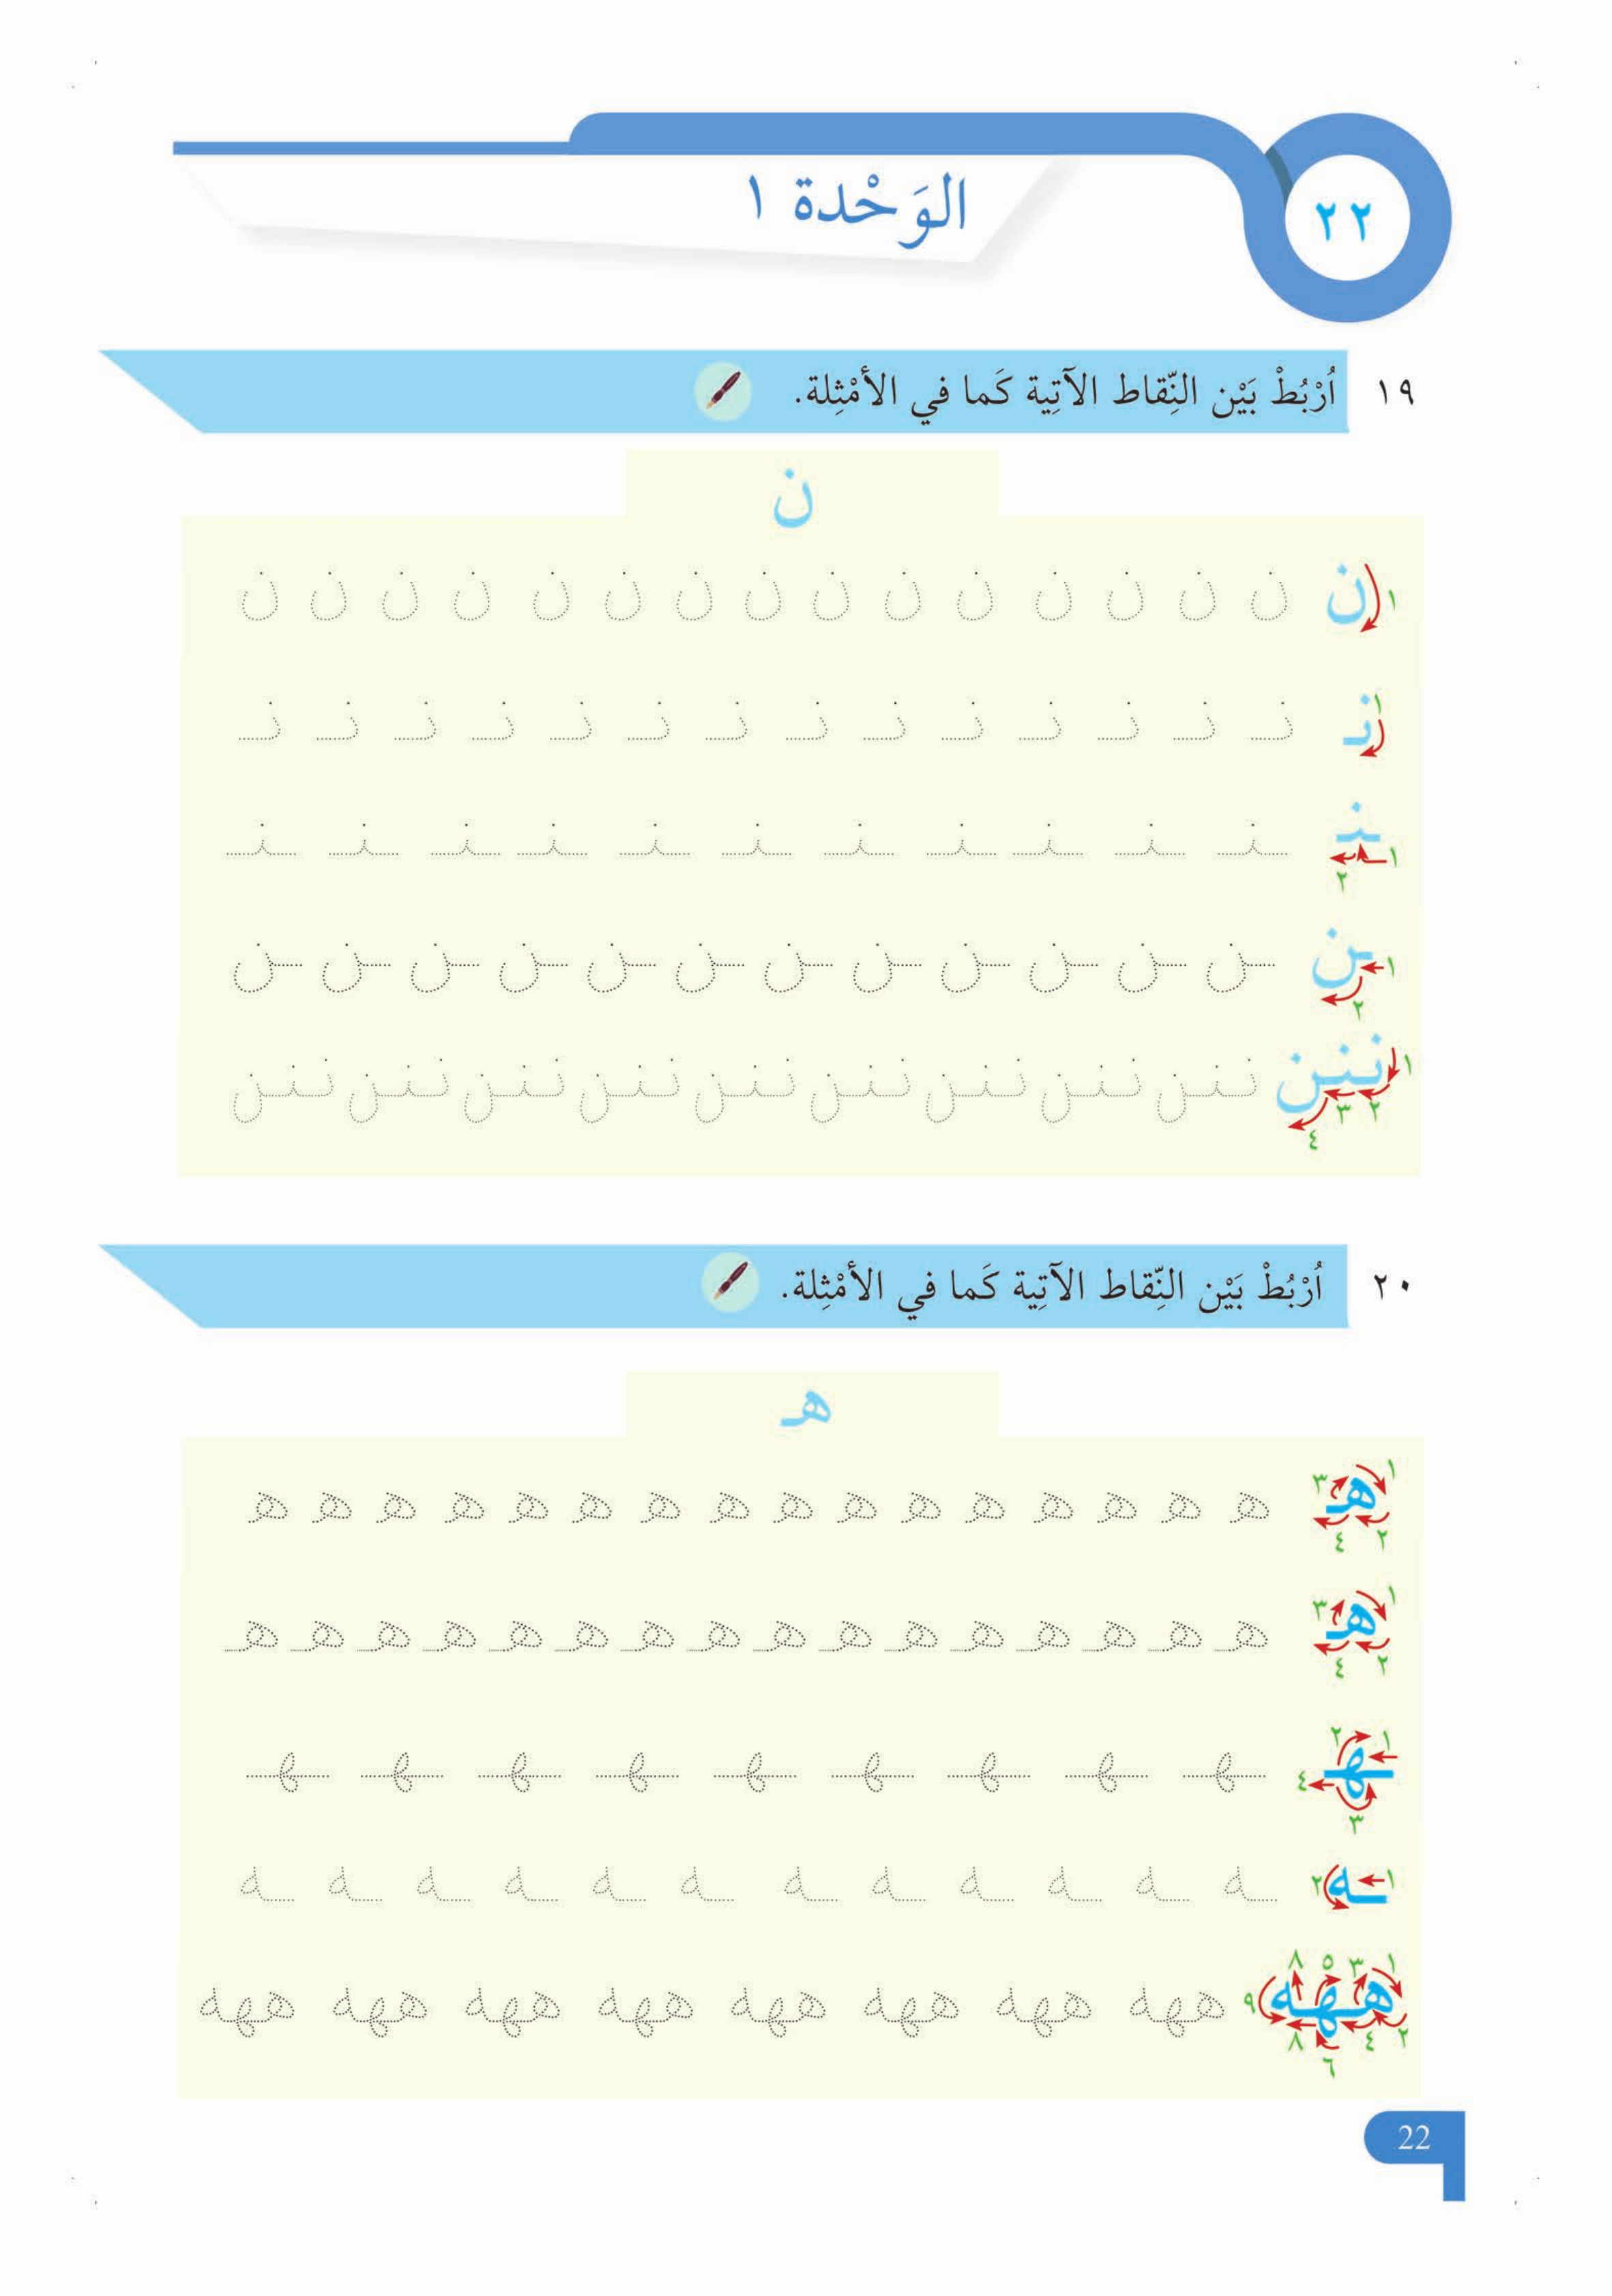 ٢٢
الوَحْدة ١
١٩ اُرْبُطْ بَيْن النِّقاط الآتِية كَما في الأمْثِلة.
ن
١ ن ن ن ن ن ن ن ن ن ن ن ن ن ن ن ن
١ نـ نـ نـ نـ نـ نـ نـ نـ نـ نـ نـ نـ نـ نـ نـ
١ ـنـ ـنـ ـنـ ـنـ ـنـ ـنـ ـنـ ـنـ ـنـ ـنـ ـنـ ـنـ
٢
١ ـن ـن ـن ـن ـن ـن ـن ـن ـن ـن ـن ـن ـن
٢
١ ننن ننن ننن ننن ننن ننن ننن ننن ننن ننن
٢ ٣
٤
٢٠ اُرْبُطْ بَيْن النِّقاط الآتِية كَما في الأمْثِلة.
هـ
١ ٣
ه ه ه ه ه ه ه ه ه ه ه ه ه ه ه ه ه
٢ ٤
١ ٣
هـ هـ هـ هـ هـ هـ هـ هـ هـ هـ هـ هـ هـ هـ هـ هـ هـ
٢ ٤
١ ٢
ـهـ ٤ ـهـ ـهـ ـهـ ـهـ ـهـ ـهـ ـهـ ـهـ ـهـ
٣
١ ـه ٢ ـه ـه ـه ـه ـه ـه ـه ـه ـه ـه ـه ـه
١ ٣ ٥ ٨
ههه ٩ ههه ههه ههه ههه ههه ههه ههه ههه
٢ ٤ ٨
٦
22